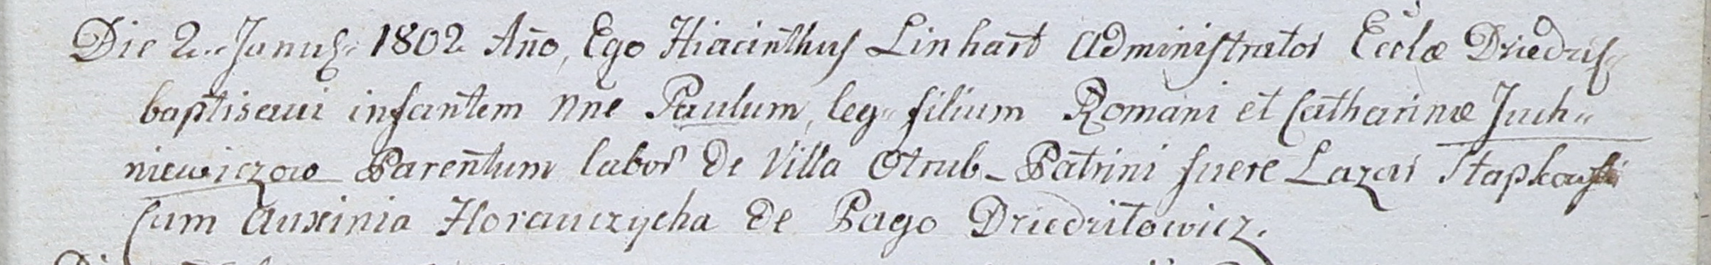 Die 2. Janus 1802 Año, Ego Hiacinthus Linhart Administrator Eclæ Dziedzis-
baptisavi infantem nne Paulum, leg. filium Romani et Catharinæ Juch-
niewiczow Parentum labor de Villa Otrub. Patrini fuere Lazar Stapkowski
cum Auxinia Horauczycha de Pago Dziedzitowicz.